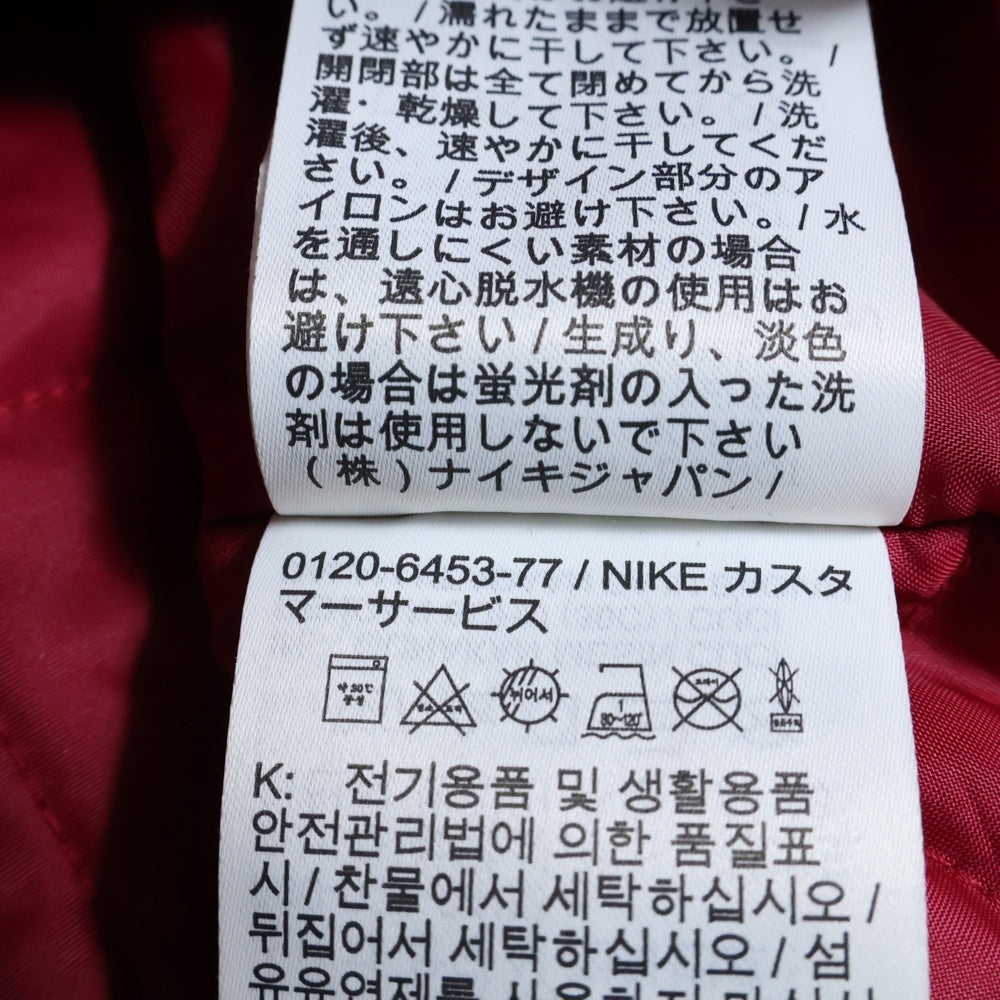 い。 / 濡れたままで放置せ
ず速やかに干して下さい。 /
開閉部は全て閉めてから洗
濯・乾燥して下さい。 / 洗
濯後、速やかに干してくだ
さい。 / デザイン部分のア
イロンはお避け下さい。 / 水
を通しにくい素材の場合
は、遠心脱水機の使用はお
避け下さい / 生成り、淡色
の場合は蛍光剤の入った洗
剤は使用しないで下さい
(株) ナイキジャパン /
0120-6453-77 / NIKE カスタ
マーサービス
약 30℃ 중성
염소 표백
뉘어서
1 80~120℃
드라이
K: 전기용품 및 생활용품
안전관리법에 의한 품질표
시 / 찬물에서 세탁하십시오 /
뒤집어서 세탁하십시오 / 섬
유유연제를 사용하지 마십